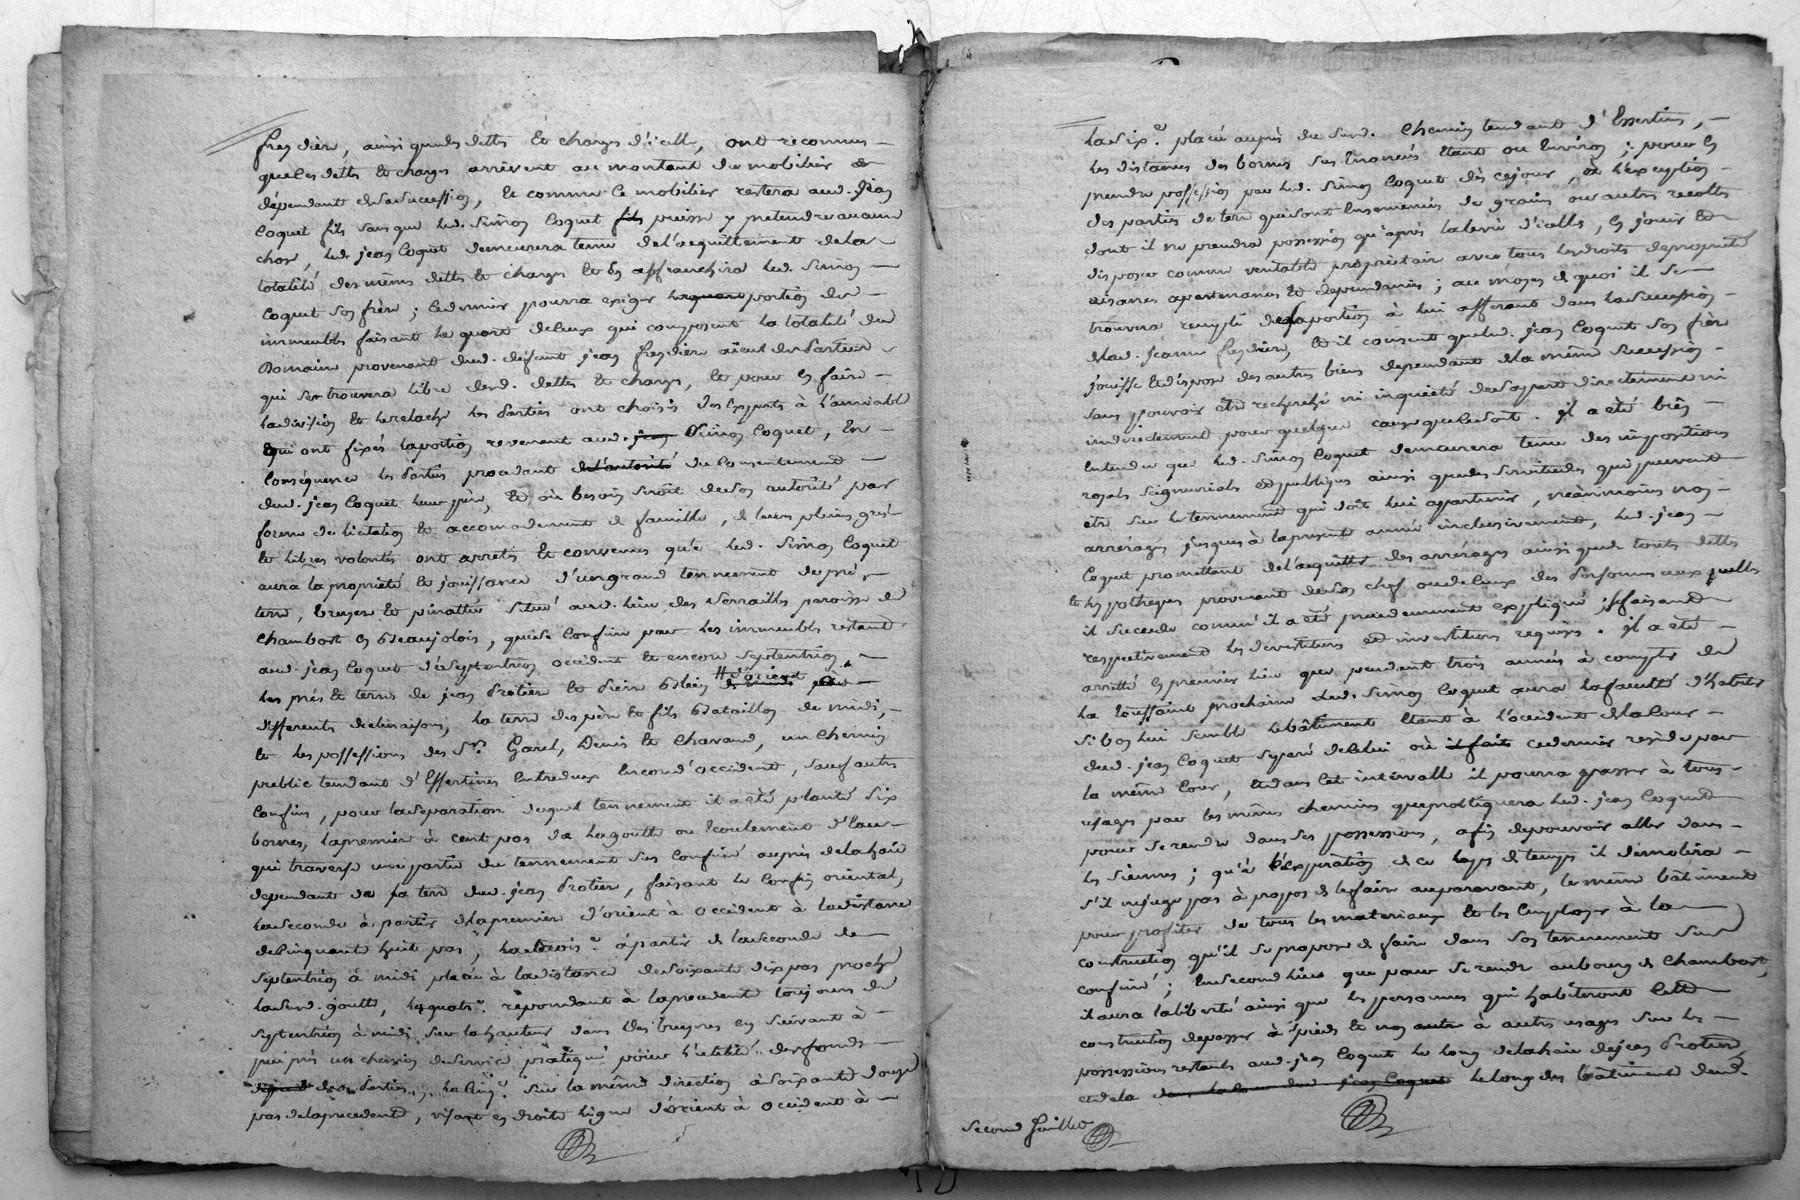 freydiere, ainsi que des dettes et charges d'icelle, ont reconnus
que les dettes et charges arrivent au montant du mobilier
dépendant de sa succession, et comme le mobilier restera aud. jean
Coquet fils sans que led. Simon Coquet fils puisse y pretendre aucune
chose, led. jean Coquet demeurera tenu de l'acquittement de la
totalité des mêmes dettes et charges et en affranchira led. Simon
Coquet son frère ; ce dernier pourra exiger portion des
immeubles faisant le quart de ceux qui composent la totalité du
Domaine provenant dud. deffunt jean freydiere aïeul des Parties
qui se trouvera libre desd. dettes et charges, et pour en faire
la division et le relache les Parties ont choisis des Experts à l'amiable
qui ont fixés la portion revenant aud. jean Simon Coquet, En
Conséquence les Parties procedant de l'autorité du Consentement
dud. jean Coquet leur père, et où besoin seroit de son autorité par
forme de licitation et accomodement de famille, de leurs pleins grés
et libres volontés ont arretés et convenus que led. Simon Coquet
aura la propriété et jouissance d'un grand tennement de pré,
terre, bruyere et pinattée situé aud. lieu des Verrailles paroisse de
Chambost en Beaujolois, qui se confine par les immeubles restant
aud. jean Coquet de septentrion occident et encore septentrion
les prés et terres de jean Protiere et Pierre d'orient
differents declinaisons, la terre des père et fils Bataillon de midi,
et les possessions des Srs. Garel, Denis et Chavand, un Chemin
public tendant d'Essertines Entredeux Encore d'occident, sauf autres
Confins, pour la separation duquel tennement il a été planté six
bornes, la premiere à cent pas de la goutte ou écoulement d'eau
qui traverse une partie du tennement sus Confiné auprès de la haie
dependant de la terre dud. jean Protiere, faisant le Confin oriental,
la seconde à partir de la premiere d'orient à occident à la distance
de Cinquante huit pas, la troise. à partir de la seconde de
septentrion à midi placée à la distance de soixante dix pas proche
la susd. goutte, la quatre. repondant à la precedente toujours de
septentrion à midi sur la hauteur dans les bruyeres en suivant à
peu près un chemin de service pratiqué pour l'utilité des fonds
des Parties, la cinq.e sur la même direction à soixante douze
pas de la precedente, visant en droite ligne d'orient à occident à
la six.e placée auprès du susd. Chemin tendant d'Essertines,
les distances des bornes sus Enoncés étant ou Environ ; pour en
prendre possession par led. Simon Coquet dès ce jour, à l'exception
des parties de terre qui sont Ensemencées de grains ou autres recoltes
dont il ne prendra possession qu'après la levée d'icelles, en jouir et
disposer comme veritable propriétaire avec tous les droits de propriété
aisances apartenances et dependances ; au moyen de quoi il se
trouvera rempli de sa portion à lui afferant dans la succession
de lad. jeanne freydiere, et il consent que led. jean Coquet son frère
jouisse et dispose des autres biens dependant de la même succession
sans pouvoir être recherché ni inquiété de sa part directement ni
indirectement pour quelque cause que ce soit. il a été bien
Entendu que led. Simon Coquet demeurera tenu des impositions
royales seigneuriales et publiques ainsi que des servitudes qui peuvent
être sur le tennement qui doit lui appartenir, néanmoins non
arréragés jusques à la presente année inclusivement, led. jean
Coquet promettant de l'acquitter des arrérages ainsi que de toutes dettes
et hypotheques provenant de son chef ou de ceux des Personnes auxquelles
il succede comme il a été precedemment expliqué ; se faisant
respectivement les devestitures et investitures requises. il a été
arretté En premier lieu que pendant trois années à compter de
la Toussaint prochaine led. Simon Coquet aura la faculté d'habiter
si bon lui semble le bâtiment étant à l'occident de la Cour
dud. jean Coquet separé de celui où il fait ce dernier reside par
la même Cour, et dans cet intervalle il pourra passer à tous
usages par les mêmes chemins que pratiquera led. jean Coquet
pour se rendre dans ses possessions, afin de pouvoir aller dans
les siennes ; qu'à l'expiration de ce laps de temps il démolira
s'il ne juge pas à propos de le faire auparavant, le même bâtiment
pour profiter de tous les materiaux et les employer à la
construction qu'il se propose de faire dans son tennement sus
confiné ; En second lieu que pour se rendre au bourg de Chambost,
il aura la liberté ainsi que les personnes qui habiteront cette
construction de passer à pieds et non autre à autres usages sur les
possessions restantes aud. jean Coquet le long de la haie de jean Protiere
et de la dans la Cour dud. jean Coquet le long des bâtiment dud.
Second feuillet